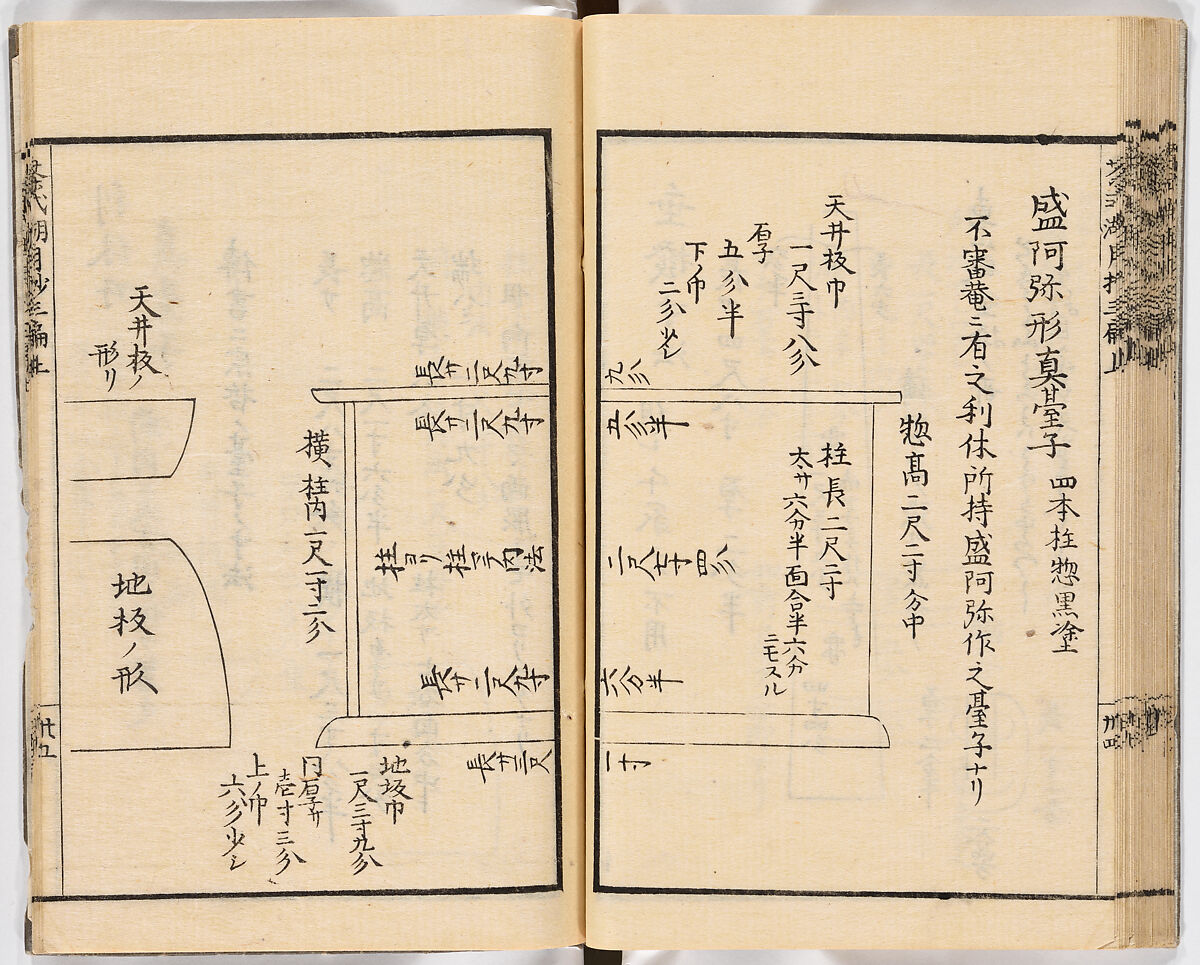 盛阿弥形真臺子 四本柱惣黒塗
不審菴ニ有之利休所持盛阿弥作之臺子ナリ
惣髙二尺二寸分中
天井板巾
一尺三寸八分
五分半
下ノ巾
二分少シ
柱長二尺二寸
太サ六分半面合半六分
ニモスル
九分
五分半
六分半
一寸
長サ二尺九寸
長サ二尺九寸
柱ヨリ柱マテ内法
長サ二尺九寸
横柱内一尺一寸二分
地板巾
一尺三寸九分
壱寸三分
上ノ巾
六分少シ
天井板ノ
形リ
地板ノ形
廿四
廿五